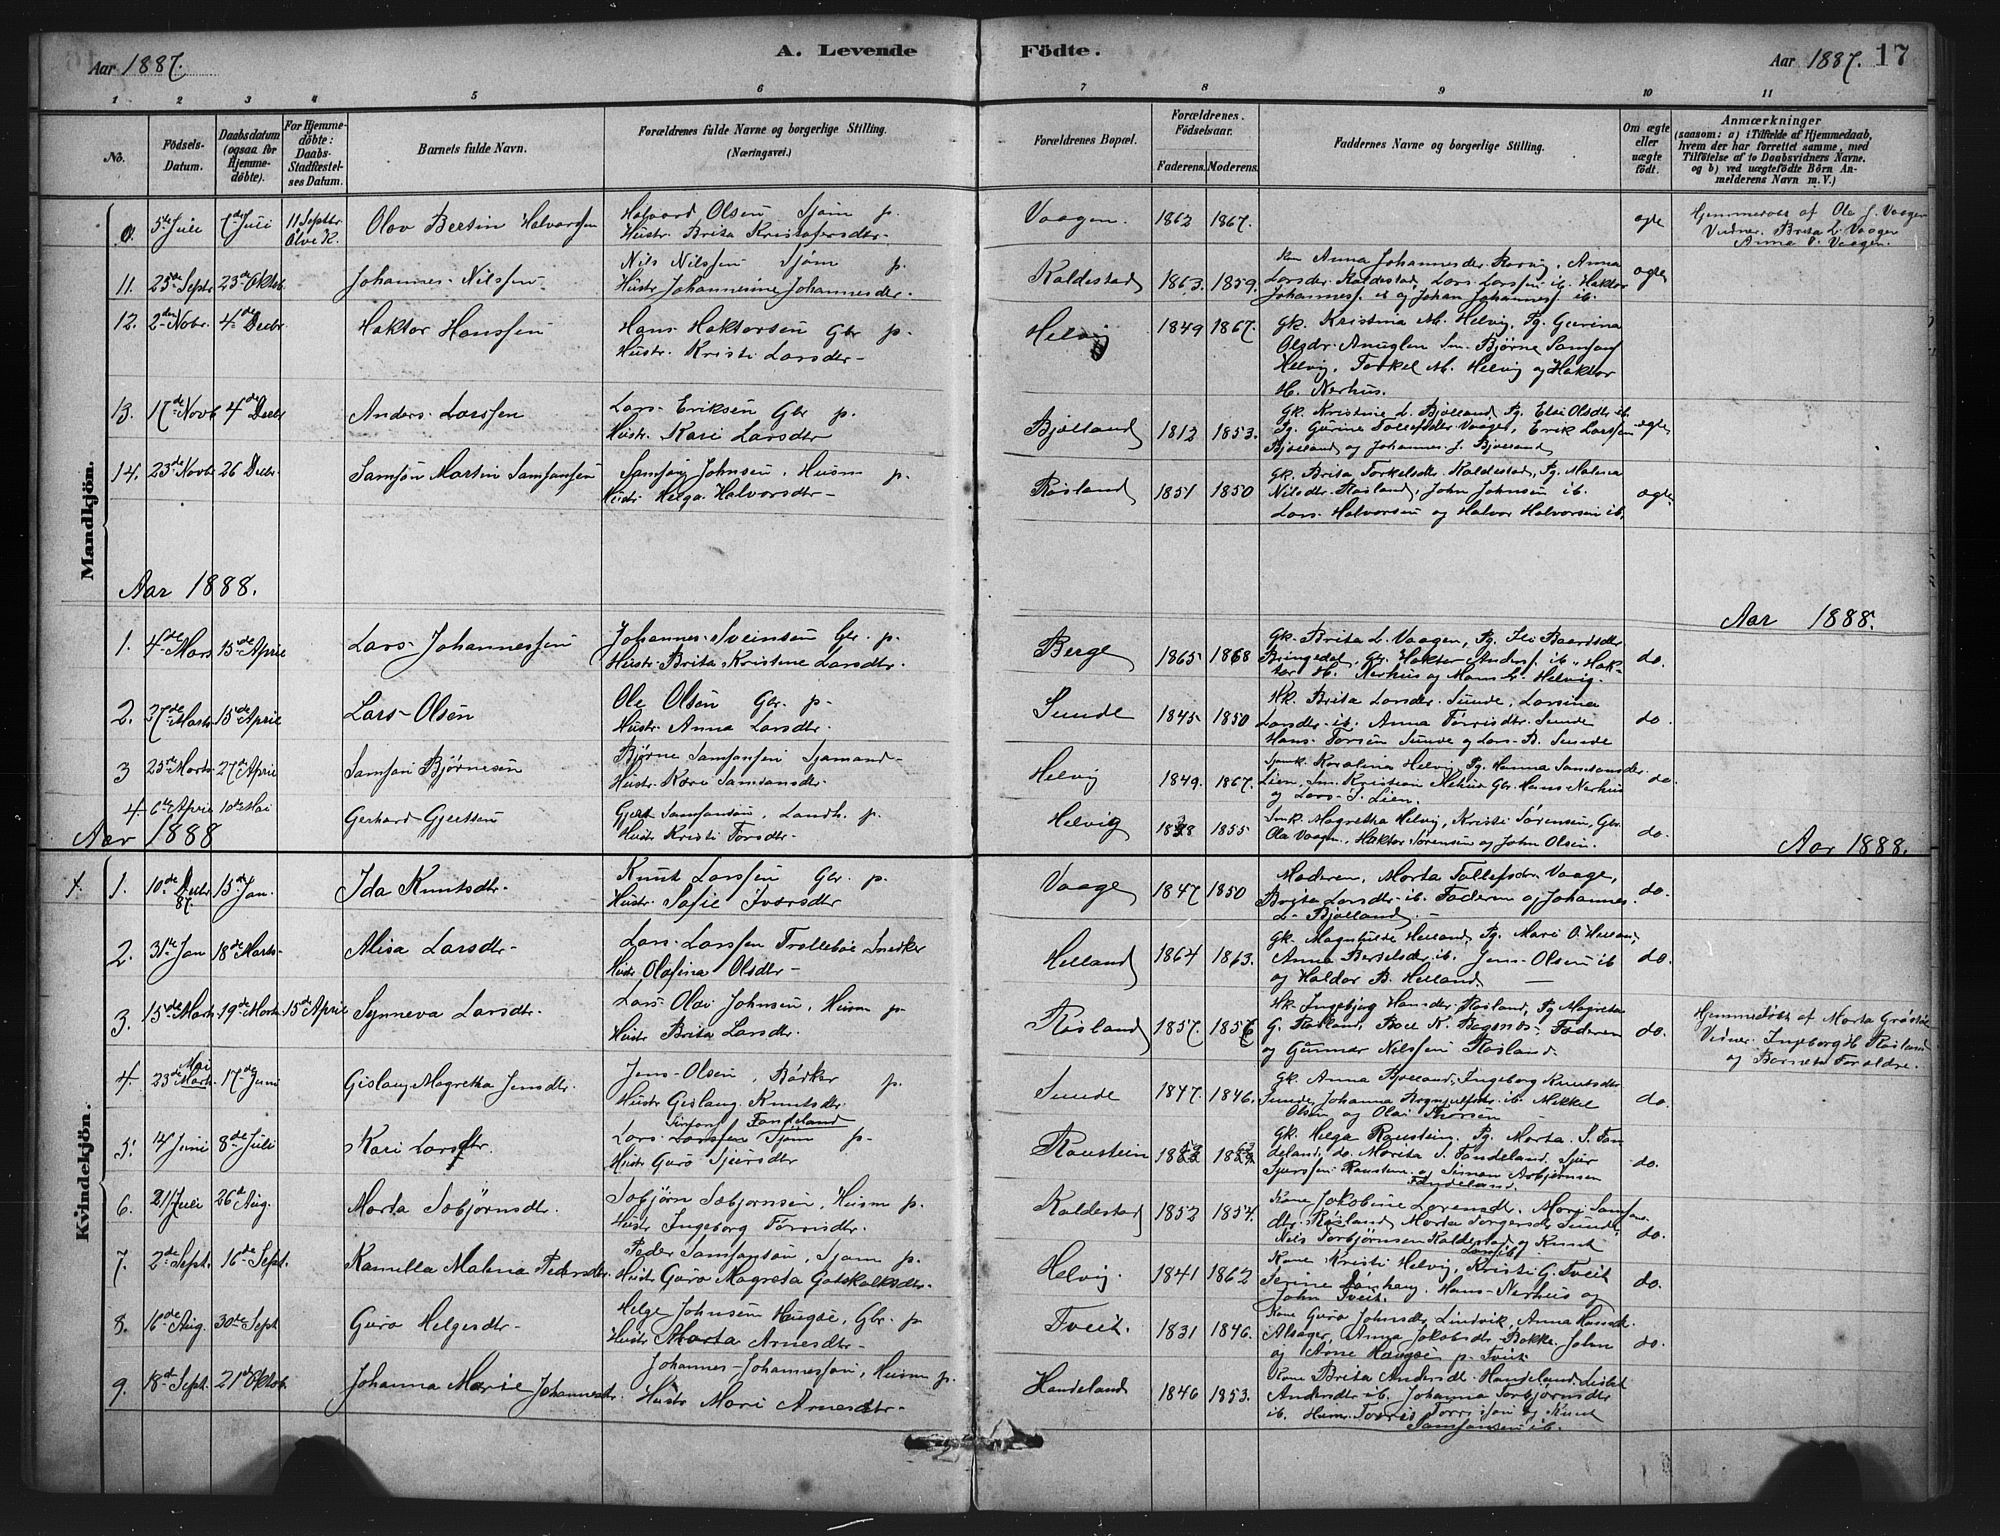 Aar 1887. A. Levende Födte. Aar 1887. 17
1 2 3 4 5 6 7 8 9 10 11
No.
Födsels-
Datum.
Daabsdatum
(ogsaa for
Hjemme-
döbte).
For Hjemme-
döbte:
Daabs-
Stadfæstel-
ses Datum.
Barnets fulde Navn.
Forældrenes fulde Navne og borgerlige Stilling.
(Næringsvei.)
Forældrenes Bopæl.
Forældrenes
Födselsaar.
Faderens. Moderens.
Faddernes Navne og borgerlige Stilling.
Om ægte
eller
uægte
födt.
Anmærkninger
(saasom: a) i Tilfælde af Hjemmedaab,
hvem der har forrettet samme, med
Tilföielse af to Daabsvidners Navne.
og b) ved uægtefödte Börn An-
melderens Navn m. V.)
Mandkjön.
5te Juli 7de Juli 11 Septbr Ølve K. Olav Bertin Halvorsen
Halvard Olsen Sjøm p.
Hustr. Brita Kristofersdtr.
Vaagen. 1862 1867. ægte
Hjemmedøbt af Ola J. Vaagen
Vidner. Brita L. Vaagen
Anna Vaagen.
11. 25de Septr 23de Oktob. Johannes Nilssen
Nils Nilssen Sjøm p.
Hustr Johannesine Johannesdtr.
Kaldestad 1863. 1859.
Kone Anna Johannesdtr , Anna
Larsdtr Kaldestad, Lars Larssen ib. Haktor
Johannes ib og Johan Johannes ib.
ægte
12. 2den Nobr. 4de Decbr Haktor Hanssen
Hans Haktorsen Gbr p.
Hustr. Kristi Larsdtr
Helvig 1849 1867.
Gk. Kristina M. Helvig, Pg. Gurina
Olsdr. Anuglen Sm. Bjørne Samsons
Helvig, Torkel M. Helvig og Haktor
H. Nerhus.
13. 17de Novb 4de Decbr Anders Larssen
Lars Eriksen Gbr p.
Hustr. Kari Larsdtr
Bjølland 1812 1853.
Gk. Kristine L. Bjølland, Pg. Olsdtr ib.
Pg. Gurine Tollefsdtr Vaage, Erik Larssen
Bjølland og Johannes J. Bjølland
ægte
14. 23de Novbr 26 Decbr. Samson Martin Samsonsen
Samson Johnsen, Husm p.
Hustr Helga Halvorsdtr
Røsland 1851 1850
Gk. Brita Torkelsdtr. Kaldestad, Pg. Malena
Nilsdtr Røsland, John Johnsen ib.
Lars Halvorsen og Halvor Halvorsen ib.
ægte
Aar 1888. Aar 1888.
1. 4de Mars 15de April Lars Johannessen
Johannes Sveinsen Gbr. p.
Hustr. Brita Kristene Larsdtr.
Berge 1865 1868
Gk. Brita L. Vaagen, Pg. Baardsdtr
Bringedal, Gbr. Haktor Anders. ib. Hak-
tor H. Nerhus og Mons Helvig.
do.
2. 27de Marts 15de April Lars Olsen
Ole Olsen Gbr. p.
Hustr. Anna Larsdtr.
Sunde 1845 1850
Hk. Brita Larsdtr. Sunde, Larsina
Larsdtr ib. Anna Torrisdtr. Sunde
Hans Torsen Sunde og Lars B. Sunde
do.
3 25de Marts 27de April Samson Bjørnesen
Bjørne Samsonsen Sjømand
Hustr. Kari Samsonsdtr.
Helvig 1849. 1867.
Karolina Helvig, Pg. Hanna Samsonsdtr
Lien, Sm. Kristian Gbr. Hans Nerhus
og Lars S. Lien.
do.
4. 6te April 10de Mai Gerhard Gjertsen
Gjert Samsonsen, Landh. p.
Hustr Kristi Torsdtr.
Helvig 1855
Smk. Magretha Helvig, Kristi Sørensen, Gbr.
Ola Vaagen, Haktor Sørensen og John Olsen.
do.
Aar 1888 Aar 1888.
Kvindekjön.
1. 10de Decbr 87. 15de Jan. Ida Knutsdtr.
Knut Larssen Gbr. p.
Hustr. Sofie Ivarsdtr
Vaage 1847 1850
Moderen, Marta Tollefsdr. Vaage,
Brita Larsdtr ib. Faderen og Johannes
L. Bjølland.
do.
2. 31te Jan 18de Marts Alisa Larsdtr
Lars Larssen Trollebøe Snedker
Hustr Olafina Olsdtr
Helland 1864 1863.
Gk. Magnhilde Helland, Pg. Mari O. Helland,
Anna Berselsdtr ib. Jens Olsen ib
og Haldor B. Helland
do.
3. 15de Marts 19de Marts 15de April Synneva Larsdtr.
Lars Olai Johnsen, Husm p.
Hustr Brita Larsdtr.
Røsland 1857.
Hk. Ingebjørg Hansdtr Røsland, Pg Magreta
G. Røsland, Boe K. Bagsnos, Faderen
og Gunnar Nilssen Røsland.
do.
Hjemmedøbt af Marta
Vidner. Ingeborg H. Røsland
og Barnets Forældre.
4. 23de Mai Marts 17de Juni Gislaug Magretha Jensdtr.
Jens Olsen, Bødker p.
Hustr Gislaug Knutsdtr.
Sunde 1847. 1846.
Gk. Anna Bjølland, Ingeborg Knutsdtr
Sunde, Johanna Brynjulfsdr. ib. Mikkel
Olsen og Olai Thorsen
do.
5. 14 Juni 8de Juli Kari Larsdtr.
Fondeland
Lars Larssen Sjøm p.
Hustr Guro Sjursdtr
Raustein
Gk. Helga Raustein, Pg. Marta S. Fon
deland, do. Marita S. Fondeland, Sjur
Sjurssen Raustein og Simon Asbjørnsen
Fondeland.
do.
6. 21 Juli 26de Aug. Marta Tobjørnsdtr.
Tobjørn Tobjørnsen, Husm p.
Hustr Ingeborg Torrisdtr.
Kaldestad 1852 1854.
Kone Jakobine Larensdtr. Mari Samson
dtr. Røsland, Marta Torgersdr Sunde
Nils Torbjørnsen Kaldestad og Knut
Larss. ib.
do.
7. 2de Sept. 16de Sept. Kamilla Malena Pedersdtr.
Peder Samsonsen, Sjøm p.
Hustr Guro Magreta Gotskalksdtr.
Helvig. 1841 1862
Kone Kristi Helvig, Kristi G. Tveit
Serine , Hans Nerhus og
John Tveit.
do.
8. 16de Aug. 30de Sept Guro Helgesdtr
Helge Johnsen Haugse, Gbr. p
Hustr Marta Arnesdtr
Tveit. 1831 1846.
Kone Guro Johnsdtr, Lindvik, Anna
Alsager, Anna Jakobsdtr Bakke, John
og Arne Haugse p. Tveit
do.
9. 18de Sept. 21de Oktob. Johanna Marie Johannesdtr
Johannes Johannessen, Husm p.
Hustr Mari Arnesdtr
Handeland 1846 1853.
Kone Brita Andersdtr. Handeland,
Andersdtr ib. Johanna Torbjørnsdtr
ib. Husm. Torris Torrissen og Knut
Samsonsen ib.